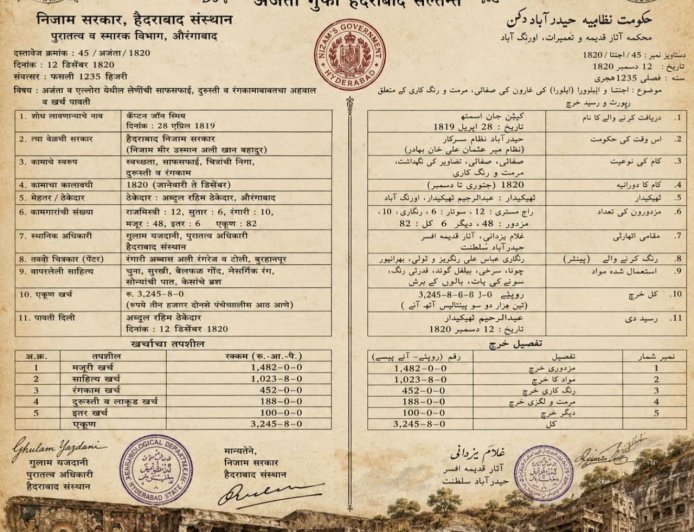 अजंता गुंफा हैदराबाद सल्तनत
निजाम सरकार, हैदराबाद संस्थान
पुरातत्व व स्मारक विभाग, औरंगाबाद
दस्तावेज क्रमांक : 45 / अजंता / 1820
दिनांक : 12 डिसेंबर 1820
संवत्सर : फसली 1235 हिजरी
विषय : अजंता व एल्लोरा येथील लेणींची साफसफाई, दुरुस्ती व रंगकामाबाबतचा अहवाल
व खर्च पावती
1. शोध लावणाऱ्याचे नाव
कॅप्टन जॉन स्मिथ
दिनांक : 28 एप्रिल 1819
2. त्या वेळची सरकार
हैदराबाद निजाम सरकार
(निजाम मीर उस्मान अली खान बहादुर)
3. कामाचे स्वरुप
स्वच्छता, साफसफाई, चित्रांची निगा,
दुरुस्ती व रंगकाम
4. कामाचा कालावधी
1820 (जानेवारी ते डिसेंबर)
5. मेहतर / ठेकेदार
ठेकेदार : अब्दुल रहिम ठेकेदार, औरंगाबाद
6. कामगारांची संख्या
राजमिस्त्री : 12, सुतार : 6, रंगारी : 10,
मजूर : 48, इतर : 6 एकूण : 82
7. स्थानिक अधिकारी
गुलाम यजदानी, पुरातत्व अधिकारी
हैदराबाद संस्थान
8. चित्रकार (पेंटर)
रंगारी अब्बास अली रंगरेज व टोली, बुरहानपूर
9. वापरलेली साहित्य
चुना, सुरखी, बेलफळ गोंद, नैसर्गिक रंग,
सोन्यांची पात, केसांचे ब्रश
10. एकूण खर्च
रु. 3,245-8-0
(रुपये तीन हजार दोनसे पंचेचाळीस आठ आणे)
11. पावती दिली
अब्दुल रहिम ठेकेदार
दिनांक : 12 डिसेंबर 1820
खर्चाचा तपशील
अ.क्र. तपशील रक्कम (रु.-आ.-पै.)
1 मजूरी खर्च 1,482-0-0
2 साहित्य खर्च 1,023-8-0
3 रंगकाम खर्च 452-0-0
4 दुरुस्ती व लाकूड खर्च 188-0-0
5 इतर खर्च 100-0-0
एकूण 3,245-8-0
Ghulam Yazdani
गुलाम यजदानी
पुरातत्व अधिकारी
हैदराबाद संस्थान
ARCHAEOLOGICAL DEPARTMENT
HYDERABAD STATE
मान्यतेने,
निजाम सरकार
हैदराबाद संस्थान
NIZAM'S GOVERNMENT
HYDERABAD
حکومت نظامیہ حیدرآباد دکن
محکمہ آثار قدیمہ و تعمیرات، اورنگ آباد
دستاویز نمبر : 45 / اجنتا / 1820
تاریخ : 12 دسمبر 1820
سنہ : فصلی 1235 ھجری
موضوع : اجنتا و ایلورا (ایلورا) کی غاروں کی صفائی، مرمت و رنگ کاری کے متعلق
رپورٹ و رسید خرچ
1. دریافت کرنے والے کا نام
کیپٹن جان اسمتھ
تاریخ : 28 اپریل 1819
2. اس وقت کی حکومت
حیدرآباد نظام سرکار
(نظام میر عثمان علی خان بھادر)
3. کام کی نوعیت
صفائی، صفائی، تصاویر کی نگہداشت،
مرمت و رنگ کاری
4. کام کا دورانیہ
1820 (جنوری تا دسمبر)
5. ٹھیکیدار
ٹھیکیدار : عبدالرحیم ٹھیکیدار، اورنگ آباد
6. مزدوروں کی تعداد
راج مستری : 12، سوتار : 6، رنگاری : 10،
مزدور : 48، دیگر 6 کل : 82
7. مقامی اتھارٹی
غلام یزدانی، آثار قدیمہ افسر
حیدرآباد سلطنت
8. رنگ کرنے والے (پینٹر)
رنگاری عباس علی رنگریز و ٹولی، برھانپور
9. استعمال شدہ مواد
چونا، سرخی، بیلفل گوند، قدرتی رنگ،
سونے کی پات، بالوں کے برش
10. کل خرچ
روپئے 3,245-8-J-8-0
(تین ہزار دو سو پینتالیس آٹھ آنے)
11. رسید دی
عبدالرحیم ٹھیکیدار
تاریخ : 12 دسمبر 1820
تفصیل خرچ
نمبر شمار تفصیل رقم (روپئے- آنے پیسے)
1 مزدوری خرچ 1,482-0-0
2 مواد کا خرچ 1,023-8-0
3 رنگ کاری خرچ 452-0-0
4 مرمت و لگڑی خرچ 188-0-0
5 دیگر خرچ 100-0-0
کل 3,245-8-0
غلام یزدانی
آثار قدیمہ افسر
حیدرآباد سلطنت